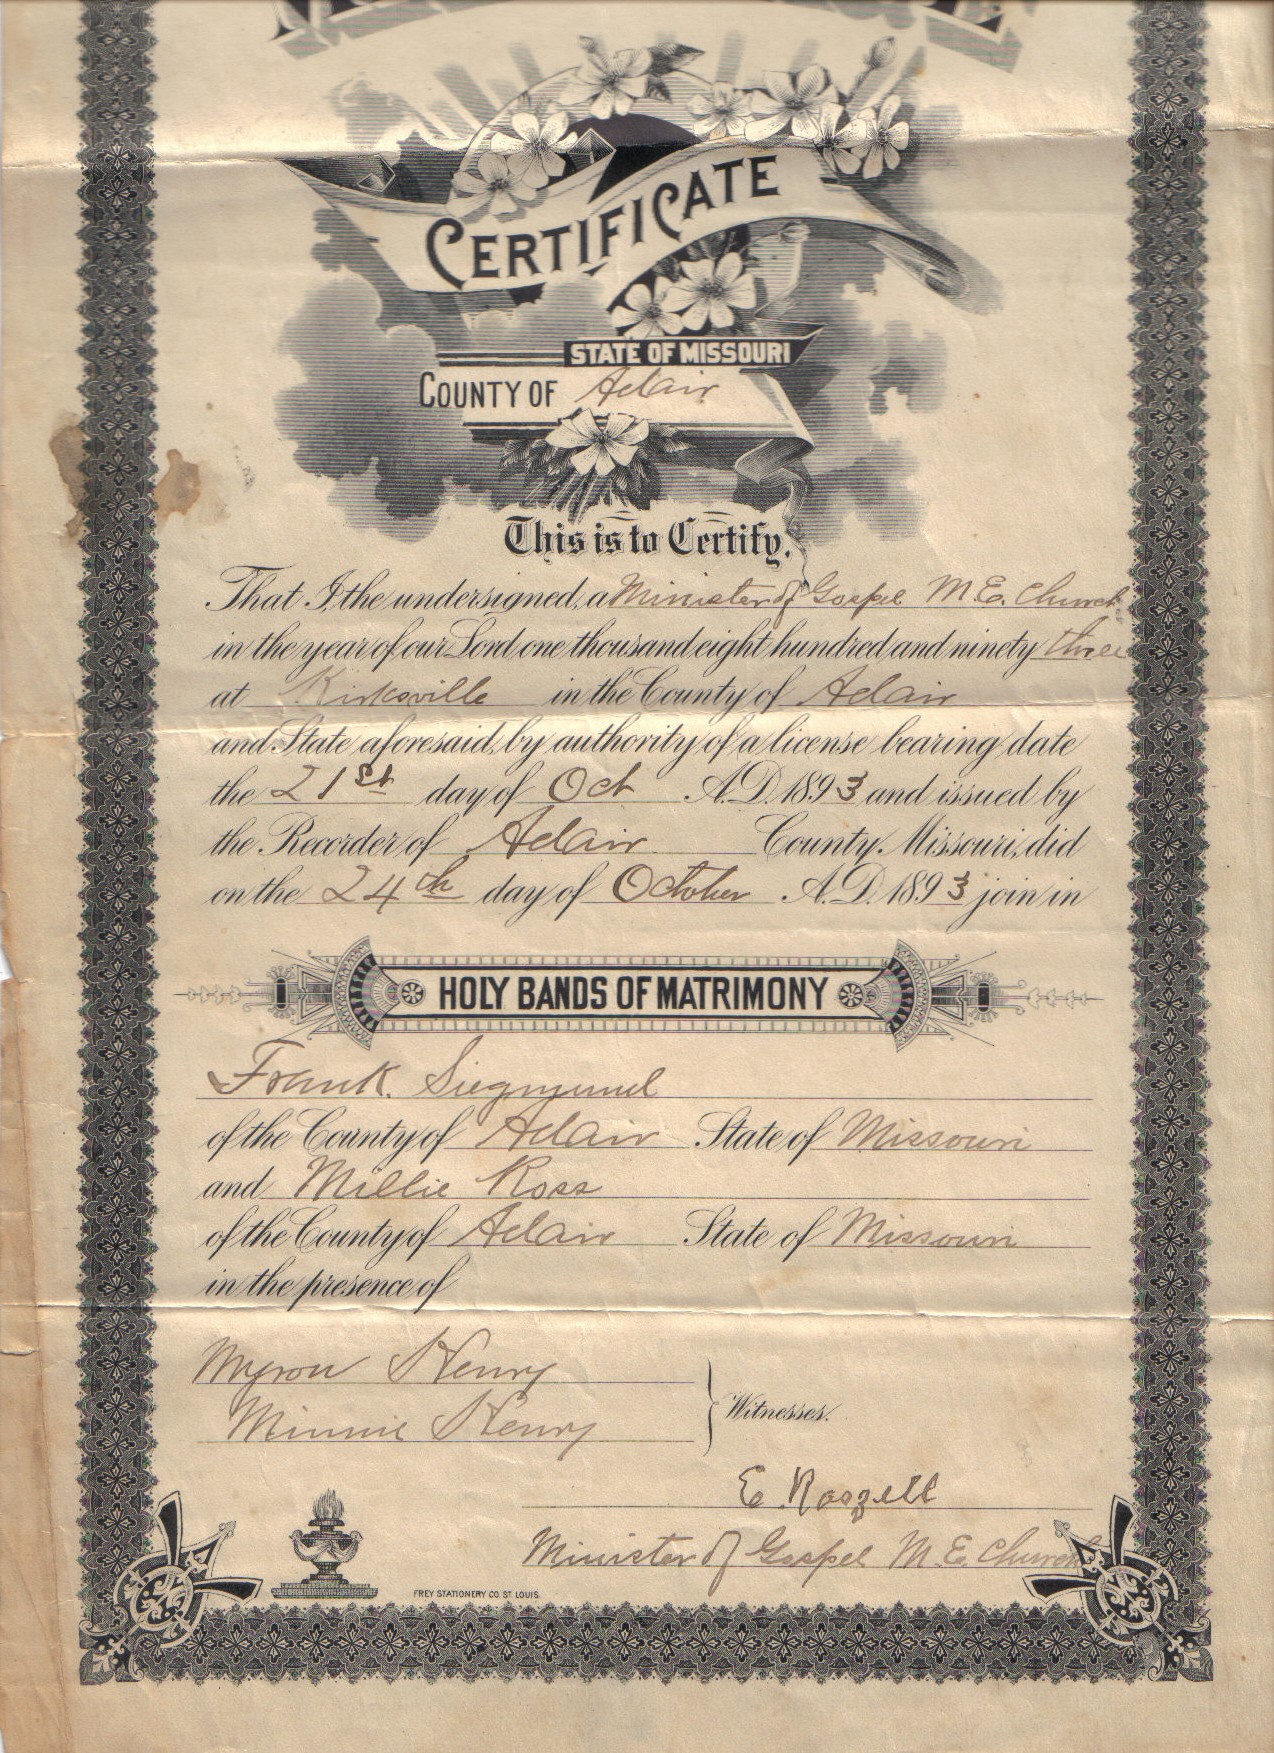 CERTIFICATE
STATE OF MISSOURI
COUNTY OF Adair
This is to Certify,
That I, the undersigned, a Minister of Gospel M.E. Church
in the year of our Lord one thousand eight hundred and ninety three
at Kirksville in the County of Adair
and State aforesaid, by authority of a license bearing date
the 21st day of Oct A.D. 1893 and issued by
the Recorder of Adair County, Missouri, did
on the 24th day of October A.D. 1893 join in
HOLY BANDS OF MATRIMONY
Frank. Siegmund
of the County of Adair State of Missouri
and Millie Ross
of the County of Adair State of Missouri
in the presence of
Myron Henry
Minnie Henry
Witnesses.
E. Roszell
Minister of Gospel M.E. Church
FREY STATIONERY CO. ST. LOUIS.